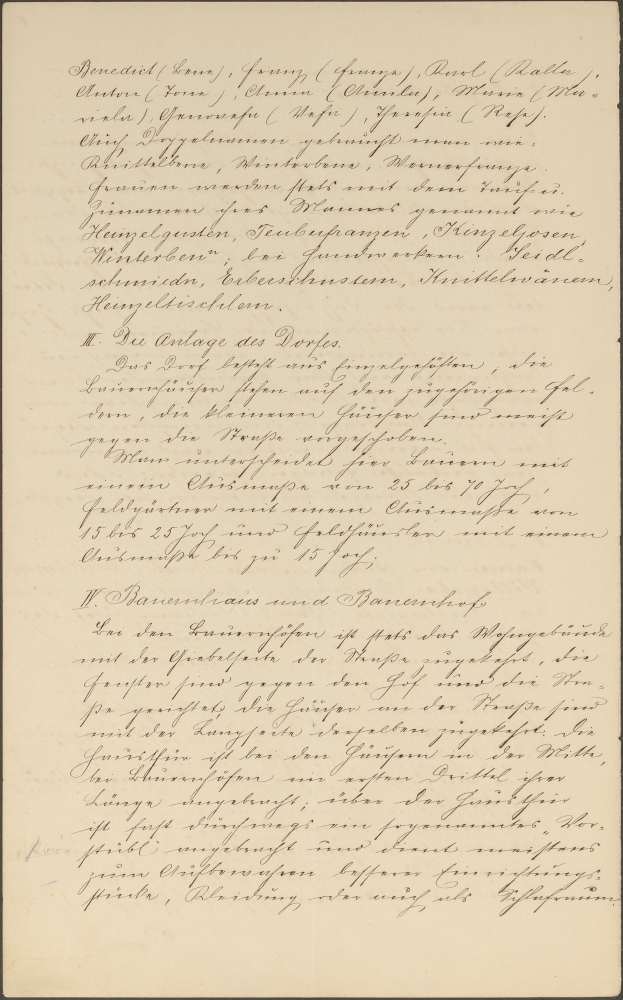 Benedict (Bene), Franz (Franze), Karl (Kalla),
Anton (Tone), Anna (Annla), Marie (Ma-
riela), Genovefa (Vefa), Theresia (Rese).
Auch Doppelnamen gebraucht man wie:
Knittelbene, Winterbene, Wernerfranze.
Frauen werden stets mit dem Tauf u.
Zunamen ihres Mannes genannt wie
Heinzelgusten, Teuberfranzen, Kinzeljosen,
Winterben"; bei Handwerkern: Seidl-
schmiedn, Erberschustern, Knittelwänern,
Heinzeltischlern.
III. Die Anlage des Dorfes.
Das Dorf besteht aus Einzelgehöften, die
Bauernhäuser stehen auf den zugehörigen Fel-
dern, die kleineren Häuser sind meist
gegen die Straße vorgeschoben.
Man unterscheidet hier Bauern mit
einem Ausmaße von 25 bis 70 Joch,
Feldgärtner mit einem Ausmaße von
15 bis 25 Joch und Feldhäusler mit einem
Ausmaße bis zu 15 Joch.
IV. Bauernhaus und Bauernhof
Bei den Bauernhöfen ist stets das Wohngebäude
mit der Giebelseite der Straße zugekehrt, die
Fenster sind gegen den Hof und die Stra-
ße gerichtet, die Häuser an der Straße sind
mit der Langseite derselben zugekehrt. Die
Hausthür ist bei den Häusern in der Mitte,
bei Bauernhöfen im ersten Drittel ihrer
Länge angebracht; über der Hausthür
ist fast durchwegs ein sogenanntes "Vor-
stübl" angebracht und dient meistens
zum Aufbewahren besserer Einrichtungs-
stücke, Kleidung oder auch als Schlafraum.